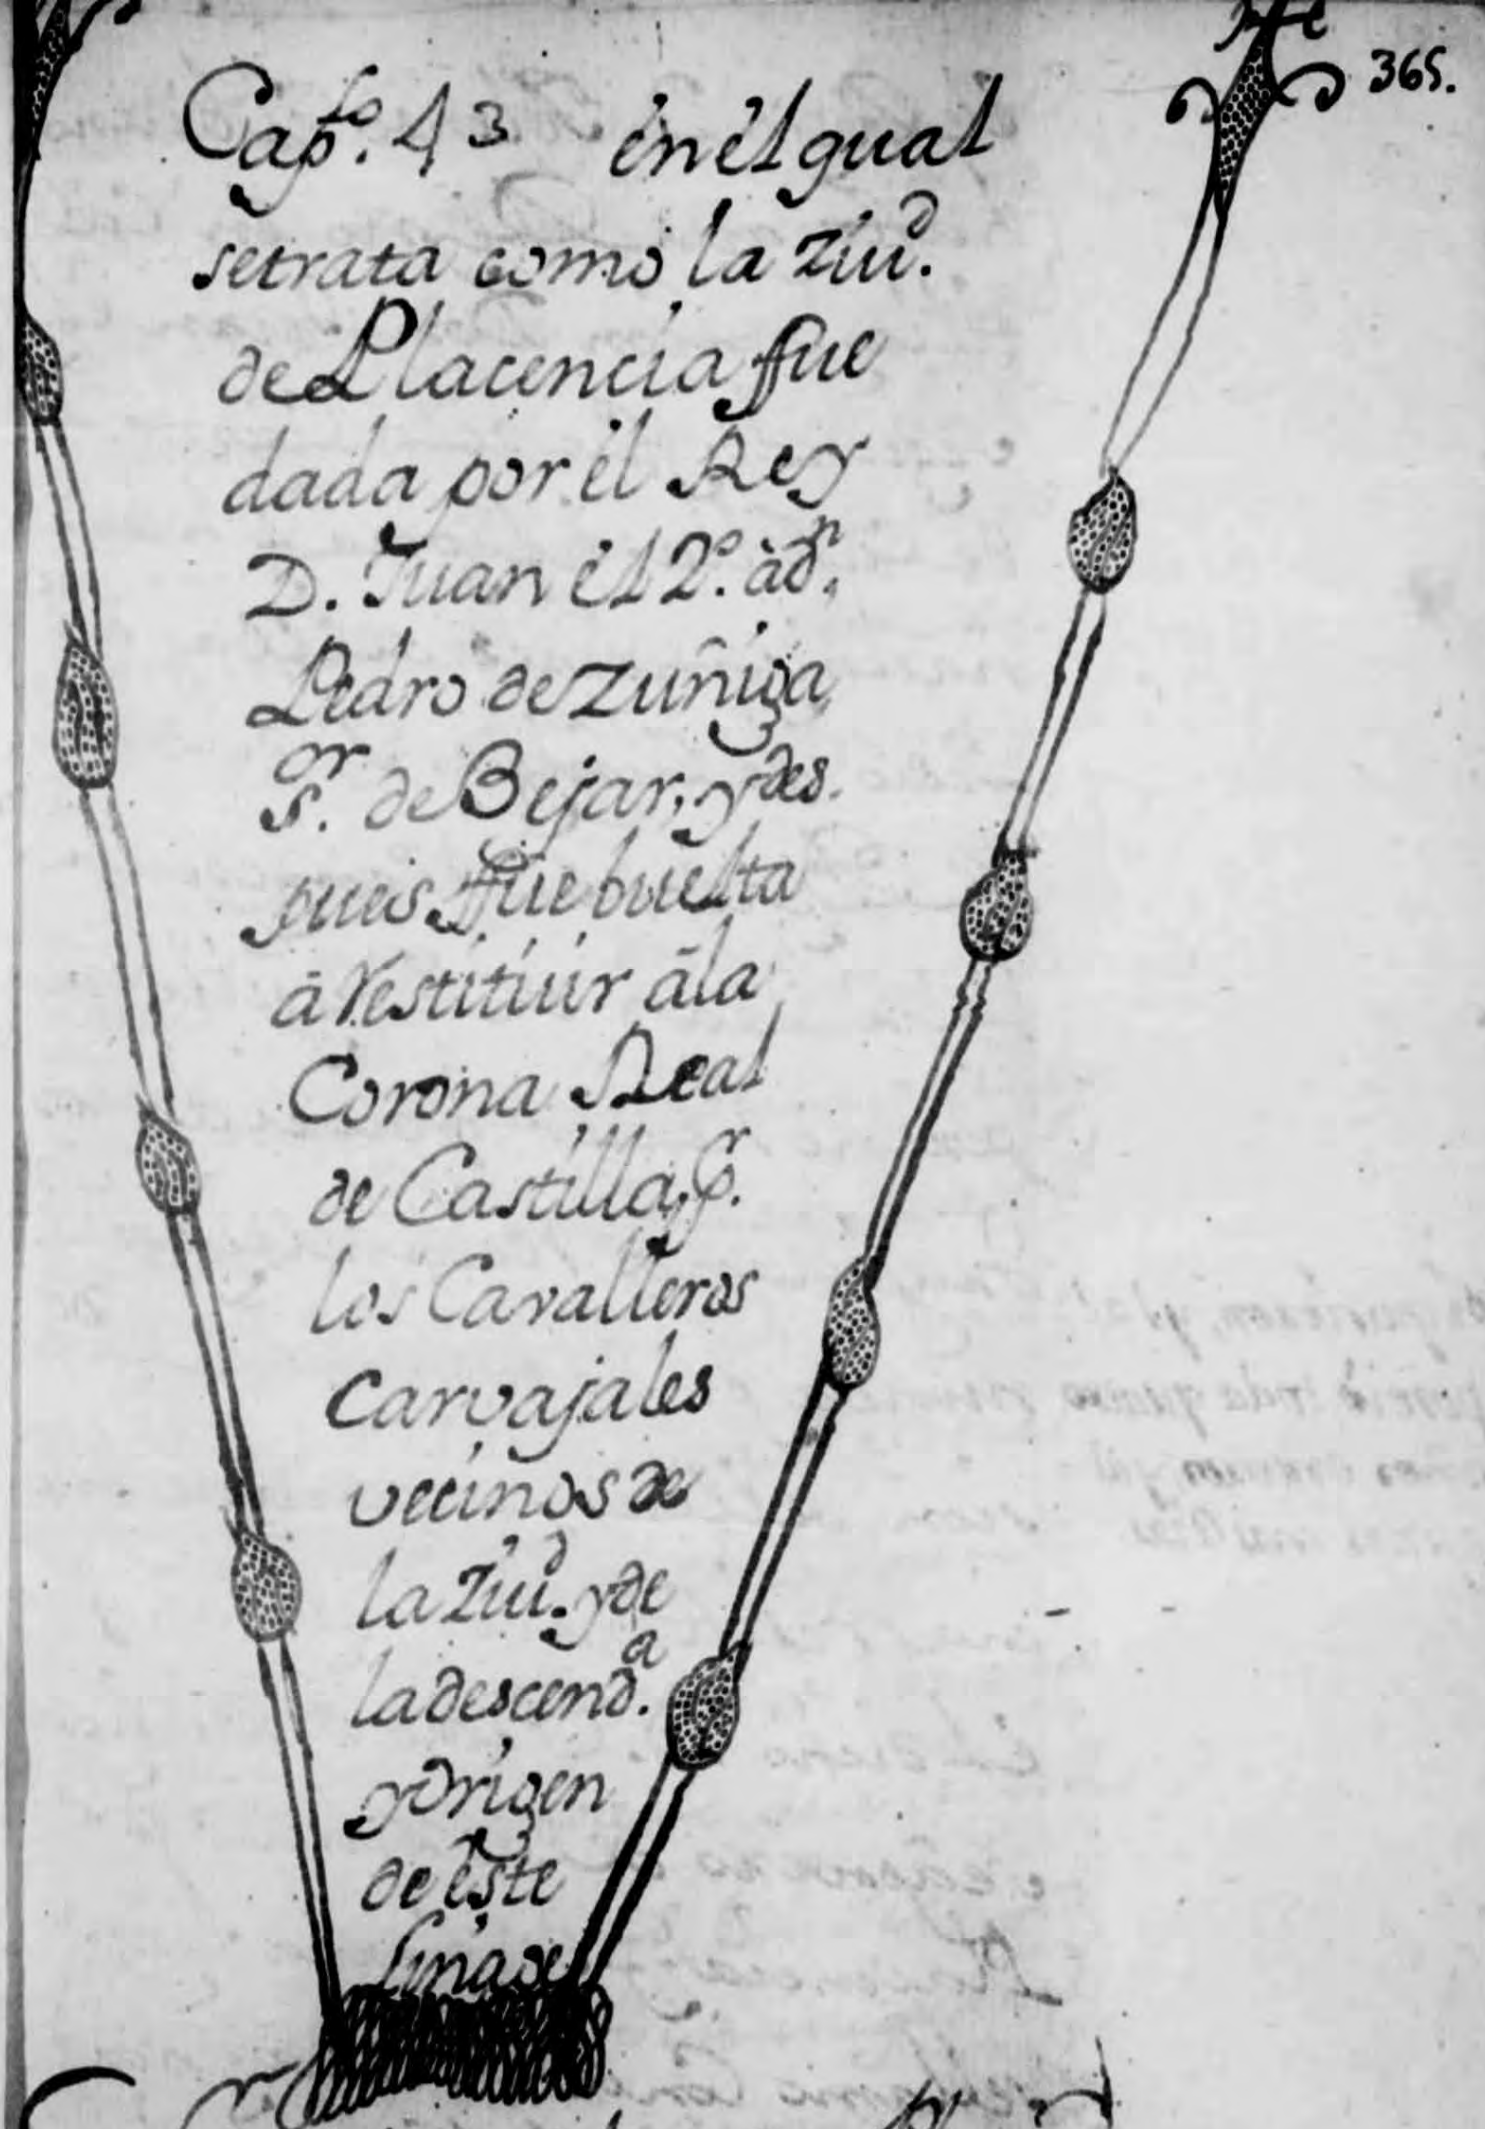 365.
Cap.to 43 en el qual
se trata como la Ziud.
de Placencia ffue
dada por el Rey
D. Juan el 2.º à dn.
Pedro de Zuñiga
S.or de Bejar, y des-
pues ffue buelta
â restituir â la
Corona Real
de Castilla, p.r
los Cavalleros
Carvajales
vecinos de
la Ziud. y de
la descend.a
y origen
de este
Linage